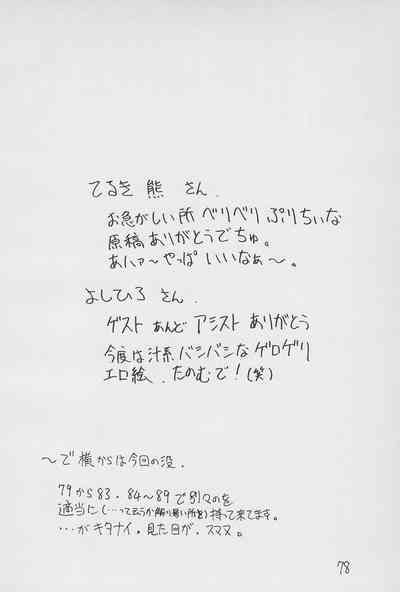 てるき 熊 さん.
お急がしい所 ベリベリ ぷりちぃな
原稿ありがとうでちゅ。
あハァ〜やっぱ いいなぁ〜。
よしひろ さん.
ゲスト あんど アシスト ありがとう
今度は汁系 バシバシな ゲロゲリ
エロ絵、たのむで!(笑)
〜で 横からは今回の没.
79から83.84〜89で別々のを
適当に(…って云うか解り易い所を)持って来てます。
…がキタナイ。見た目が、スマヌ。
78